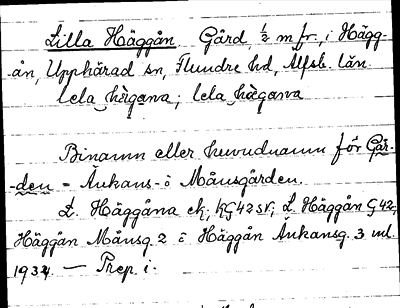 Lilla Häggån Gård, 1/2 m fr., i Hägg-
ån, Upphärad sn, Flundre hd, Älfsb. län.
lela hä̀gana; lela hä̀gana
Binamn eller huvudnamn för Går-
-den = Ånkans- o Månsgården.
L. Häggåna ek; KG 42 sv; L. Häggån G 42;
Häggån Månsg. 2 o Häggån Änkansg. 3 ml.
1934 — Prep. i.